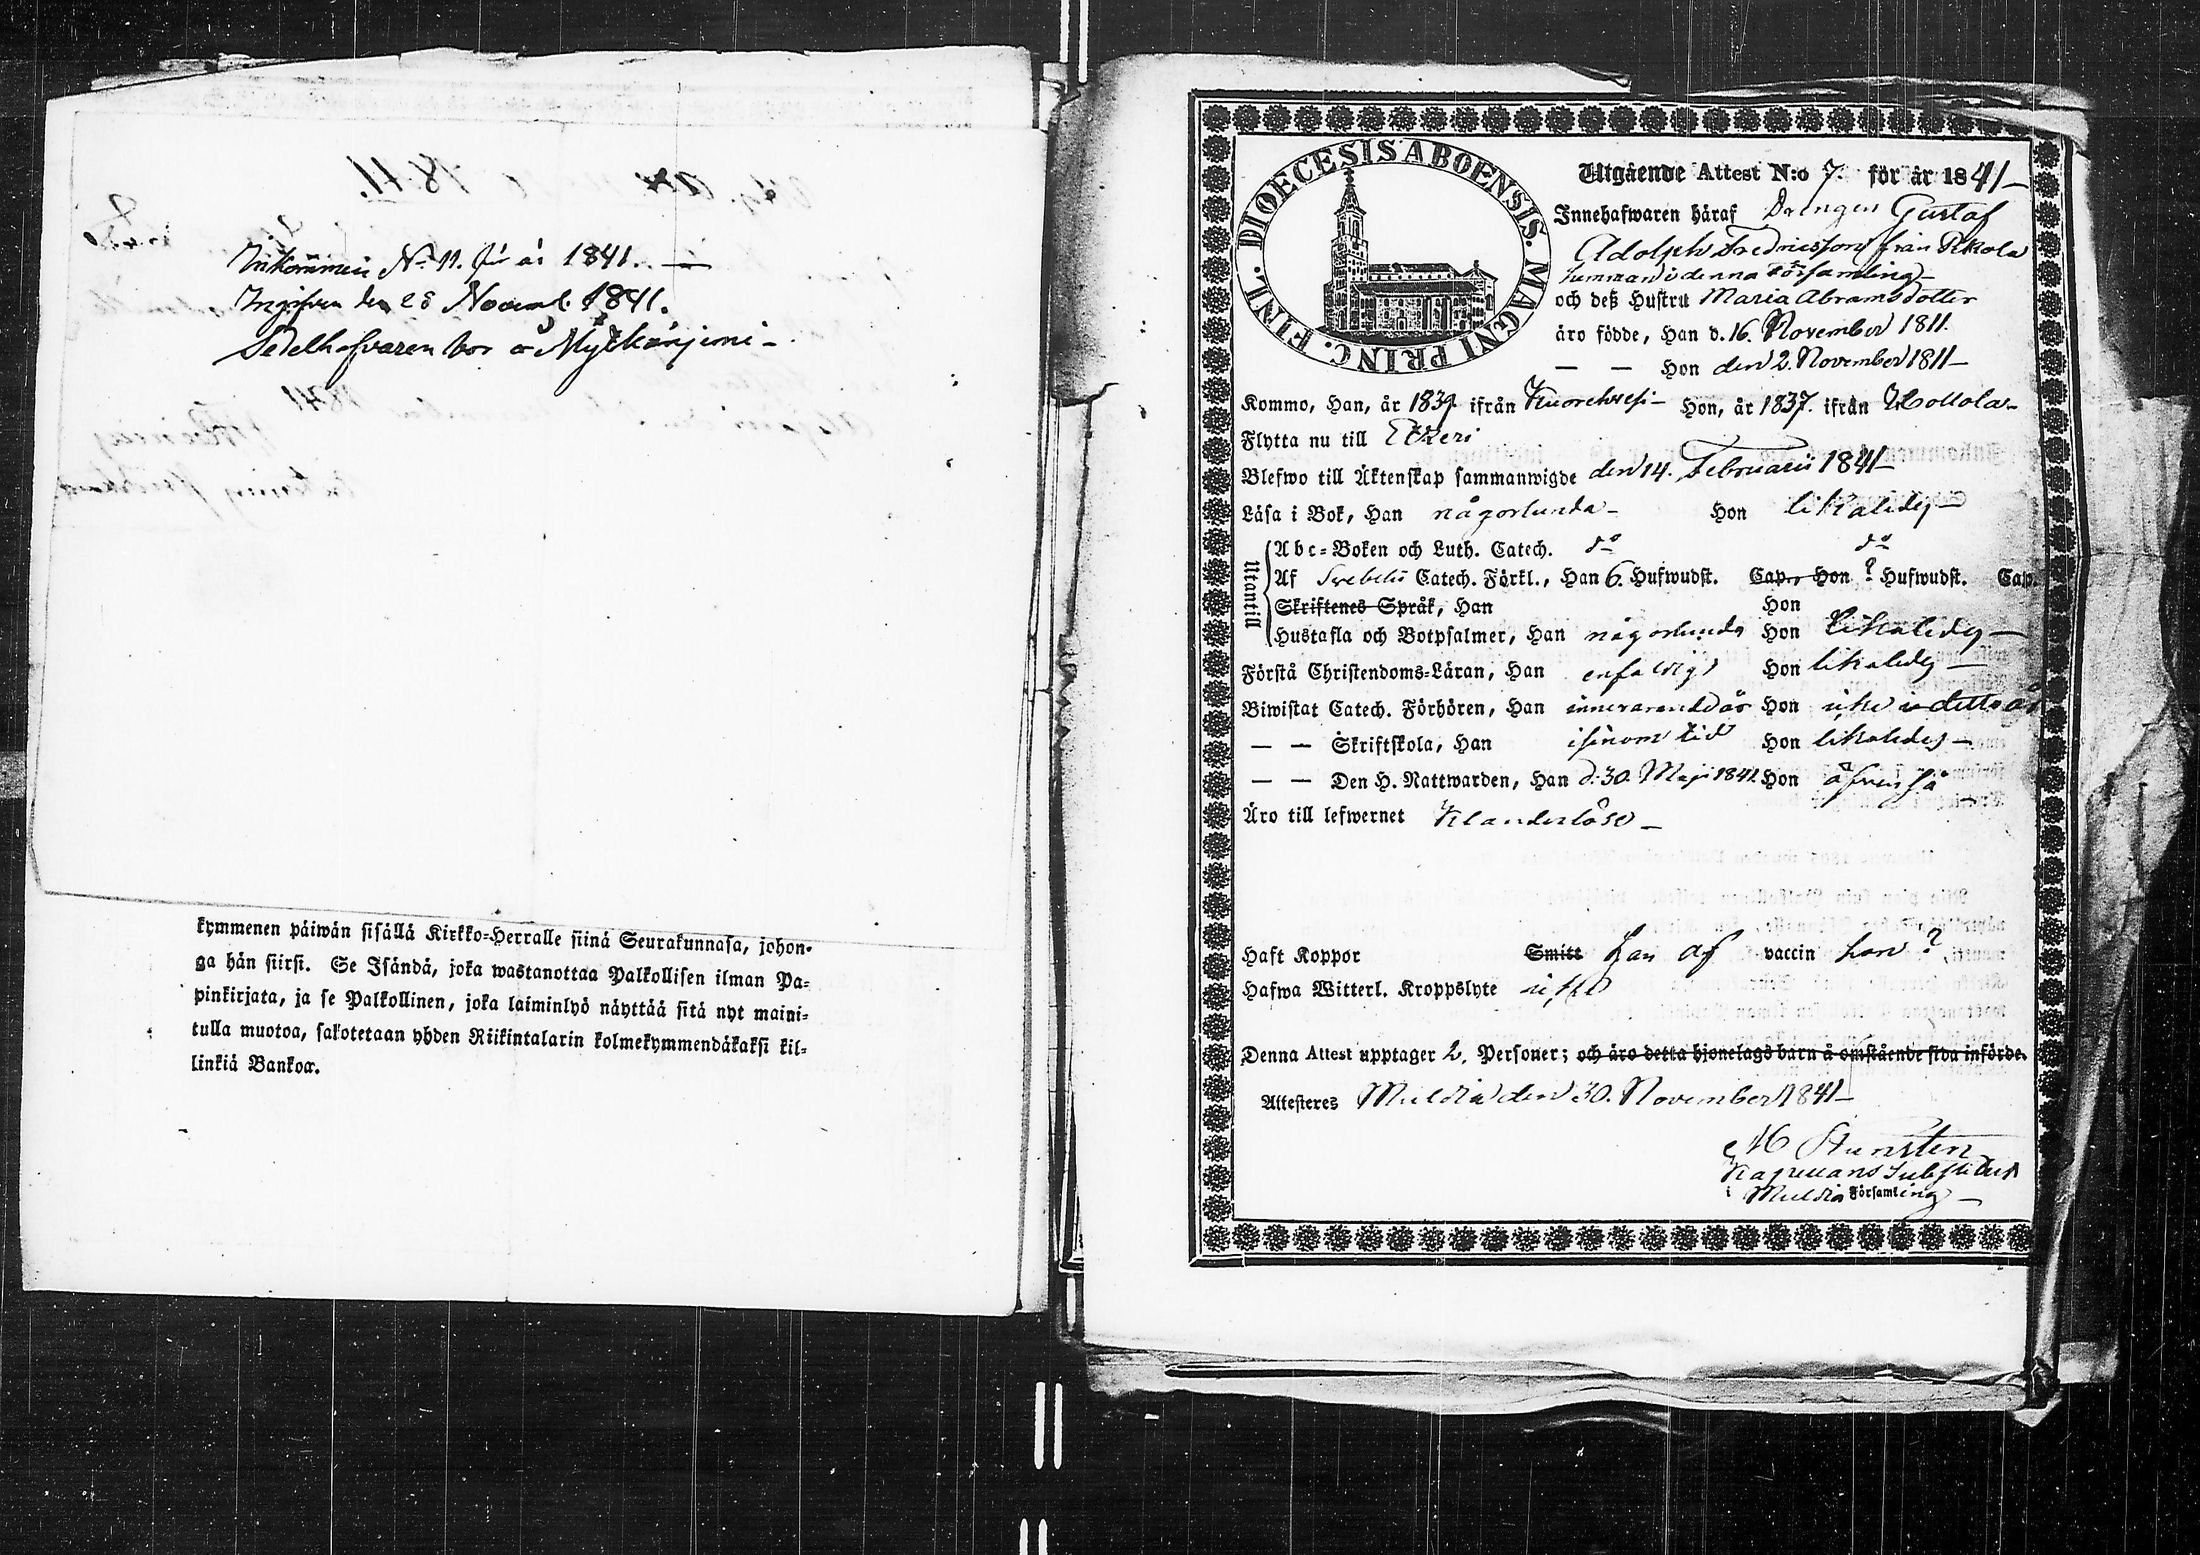 Inkommen No 11. för år 1841.
Ingifven den 28 Novemb. 1841.
Sedelhafvaren bor å
kymmenen päiwän sisällä Kirkko-Herralle siinä Seurakunnasa, johon-
ga hän siirsi. Se Isändä, joka wastanottaa Palkollisen ilman Pa-
pinkirjata, ja se Palkollinen, joka laiminlyö näyttää sitä nyt maini-
tulla muotoa, sakotetaan yhden Riikintalarin kolmekymmendäkaksi kil-
lingiä Bankoa.
FINL. DIOECESIS ABOENSIS. MAGNI PRINC.
Utgående Attest N:o 7. för år 1841
Innehafwaren häraf Drengen Gustaf
Adolph Fredricsson från
i denna församling
och deß Hustru Maria Abramsdotter
äro födde, Han d. 16. November 1811.
— — Hon den 2. November 1811
Kommo, Han, år 1839. ifrån Kuorehvesi Hon, år 1837. ifrån Hollola
Flytta nu till Etzeri
Blefwo till Äktenskap sammanwigde den 14. Februarii 1841
Läsa i Bok, Han någorlunda Hon likaledes
Utantill
Abc-Boken och Luth. Catech. do do
Af Svebelii Catech. Förkl., Han 6. Hufwudst. Cap., Hon ? Hufwudst. Cap.
Skriftenes Språk, Han Hon
Hustafla och Botpsalmer, Han någorlunda Hon likaledes
Förstå Christendoms-Läran, Han enfaldigt Hon likaledes
Biwistat Catech. Förhören, Han innevarande år Hon icke i detta år
— — Skriftskola, Han i sinom tid Hon likaledes
— — Den H. Nattwarden, Han d. 30. Maji 1841. Hon äfven så
Äro till lefwernet Klanderlöse
Haft Koppor Smitt han af vaccin hon ?
Hafwa Witterl. Kroppslyte icke
Denna Attest upptager 2. Personer; och äro detta hjonelags barn å omstående sida införde.
Attesteres Muldia den 30. November 1841
Kapellans Substitut
i Muldia Församling